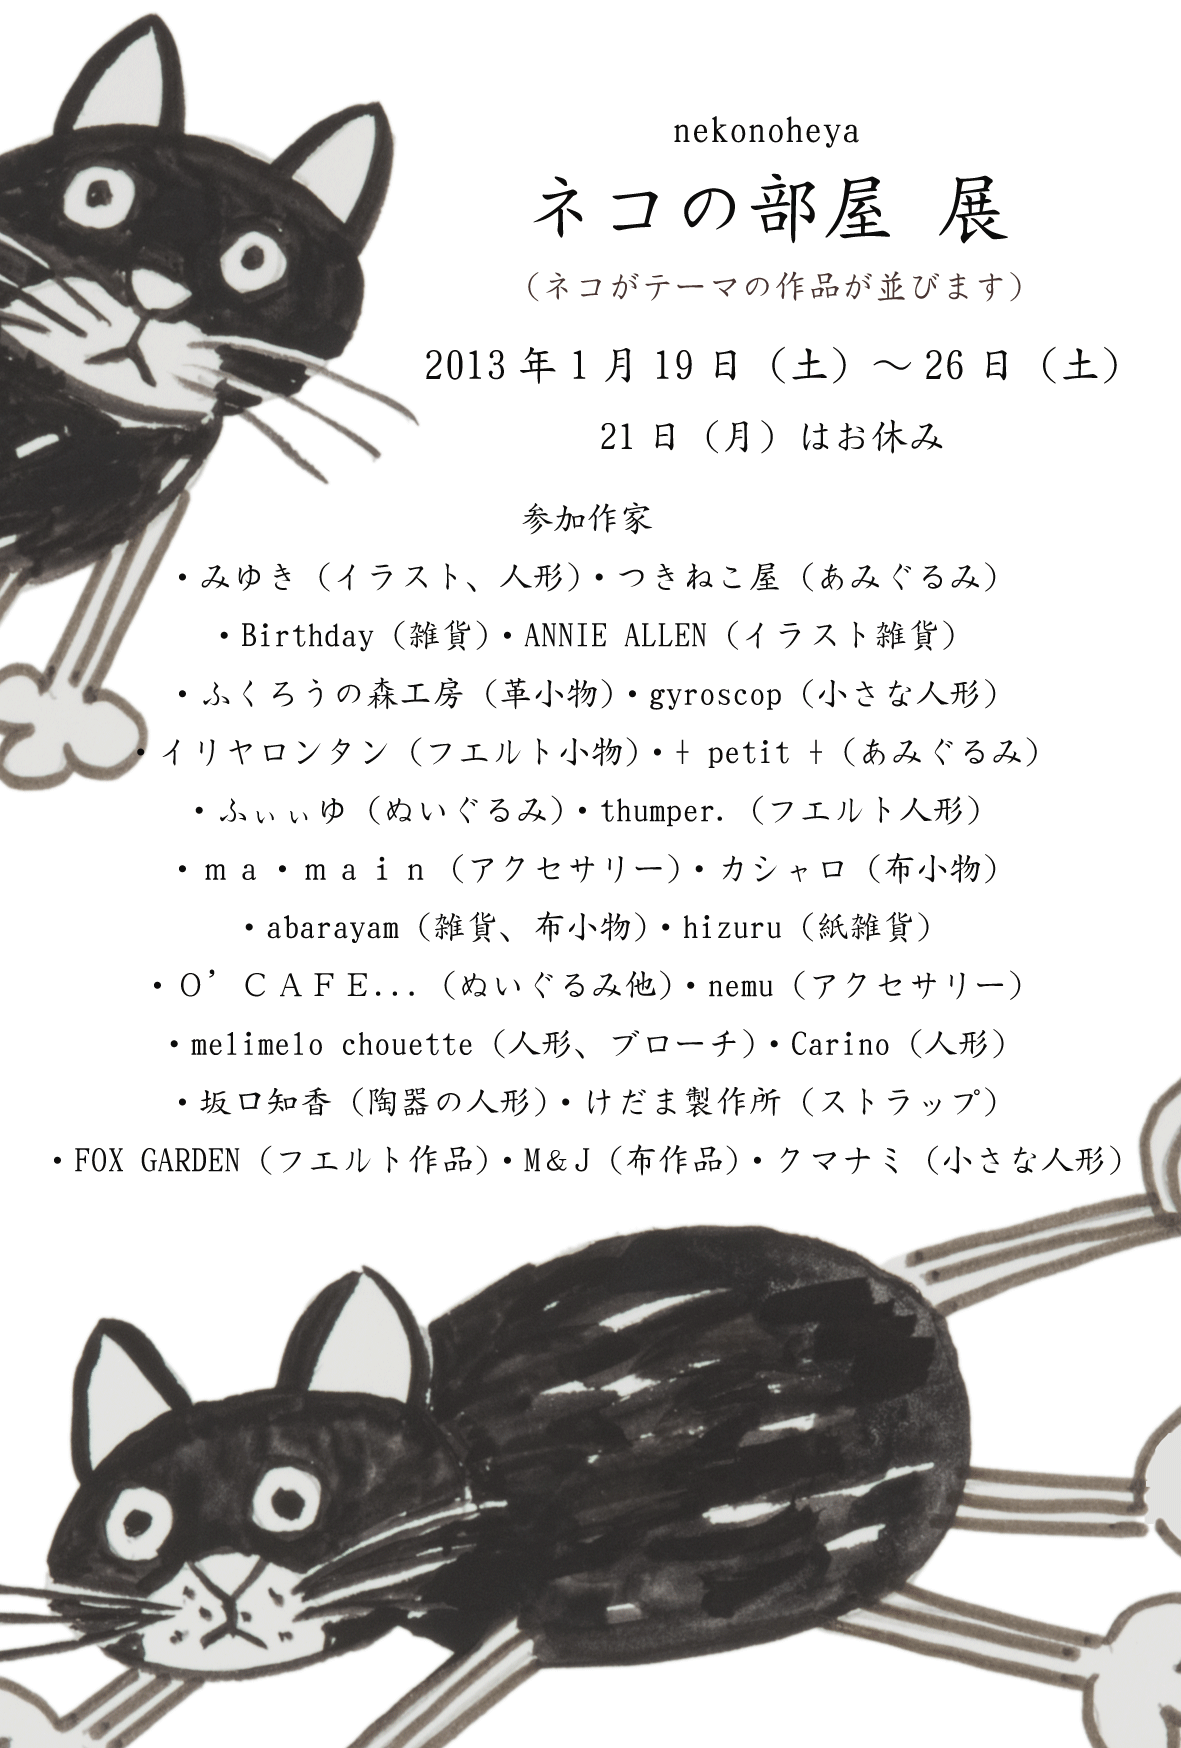 nekonoheya
ネコの部屋 展
（ネコがテーマの作品が並びます）
2013年1月19日（土）～26日（土）
21日（月）はお休み
参加作家
・みゆき（イラスト、人形）・つきねこ屋（あみぐるみ）
・Birthday（雑貨）・ANNIE ALLEN（イラスト雑貨）
・ふくろうの森工房（革小物）・gyroscop（小さな人形）
・イリヤロンタン（フエルト小物）・‡ petit ‡（あみぐるみ）
・ふぃぃゆ（ぬいぐるみ）・thumper.（フエルト人形）
・ｍａ・ｍａｉｎ（アクセサリー）・カシャロ（布小物）
・abarayam（雑貨、布小物）・hizuru（紙雑貨）
・Ｏ’ＣＡＦＥ...（ぬいぐるみ他）・nemu（アクセサリー）
・melimelo chouette（人形、ブローチ）・Carino（人形）
・坂口知香（陶器の人形）・けだま製作所（ストラップ）
・FOX GARDEN（フエルト作品）・M＆J（布作品）・クマナミ（小さな人形）